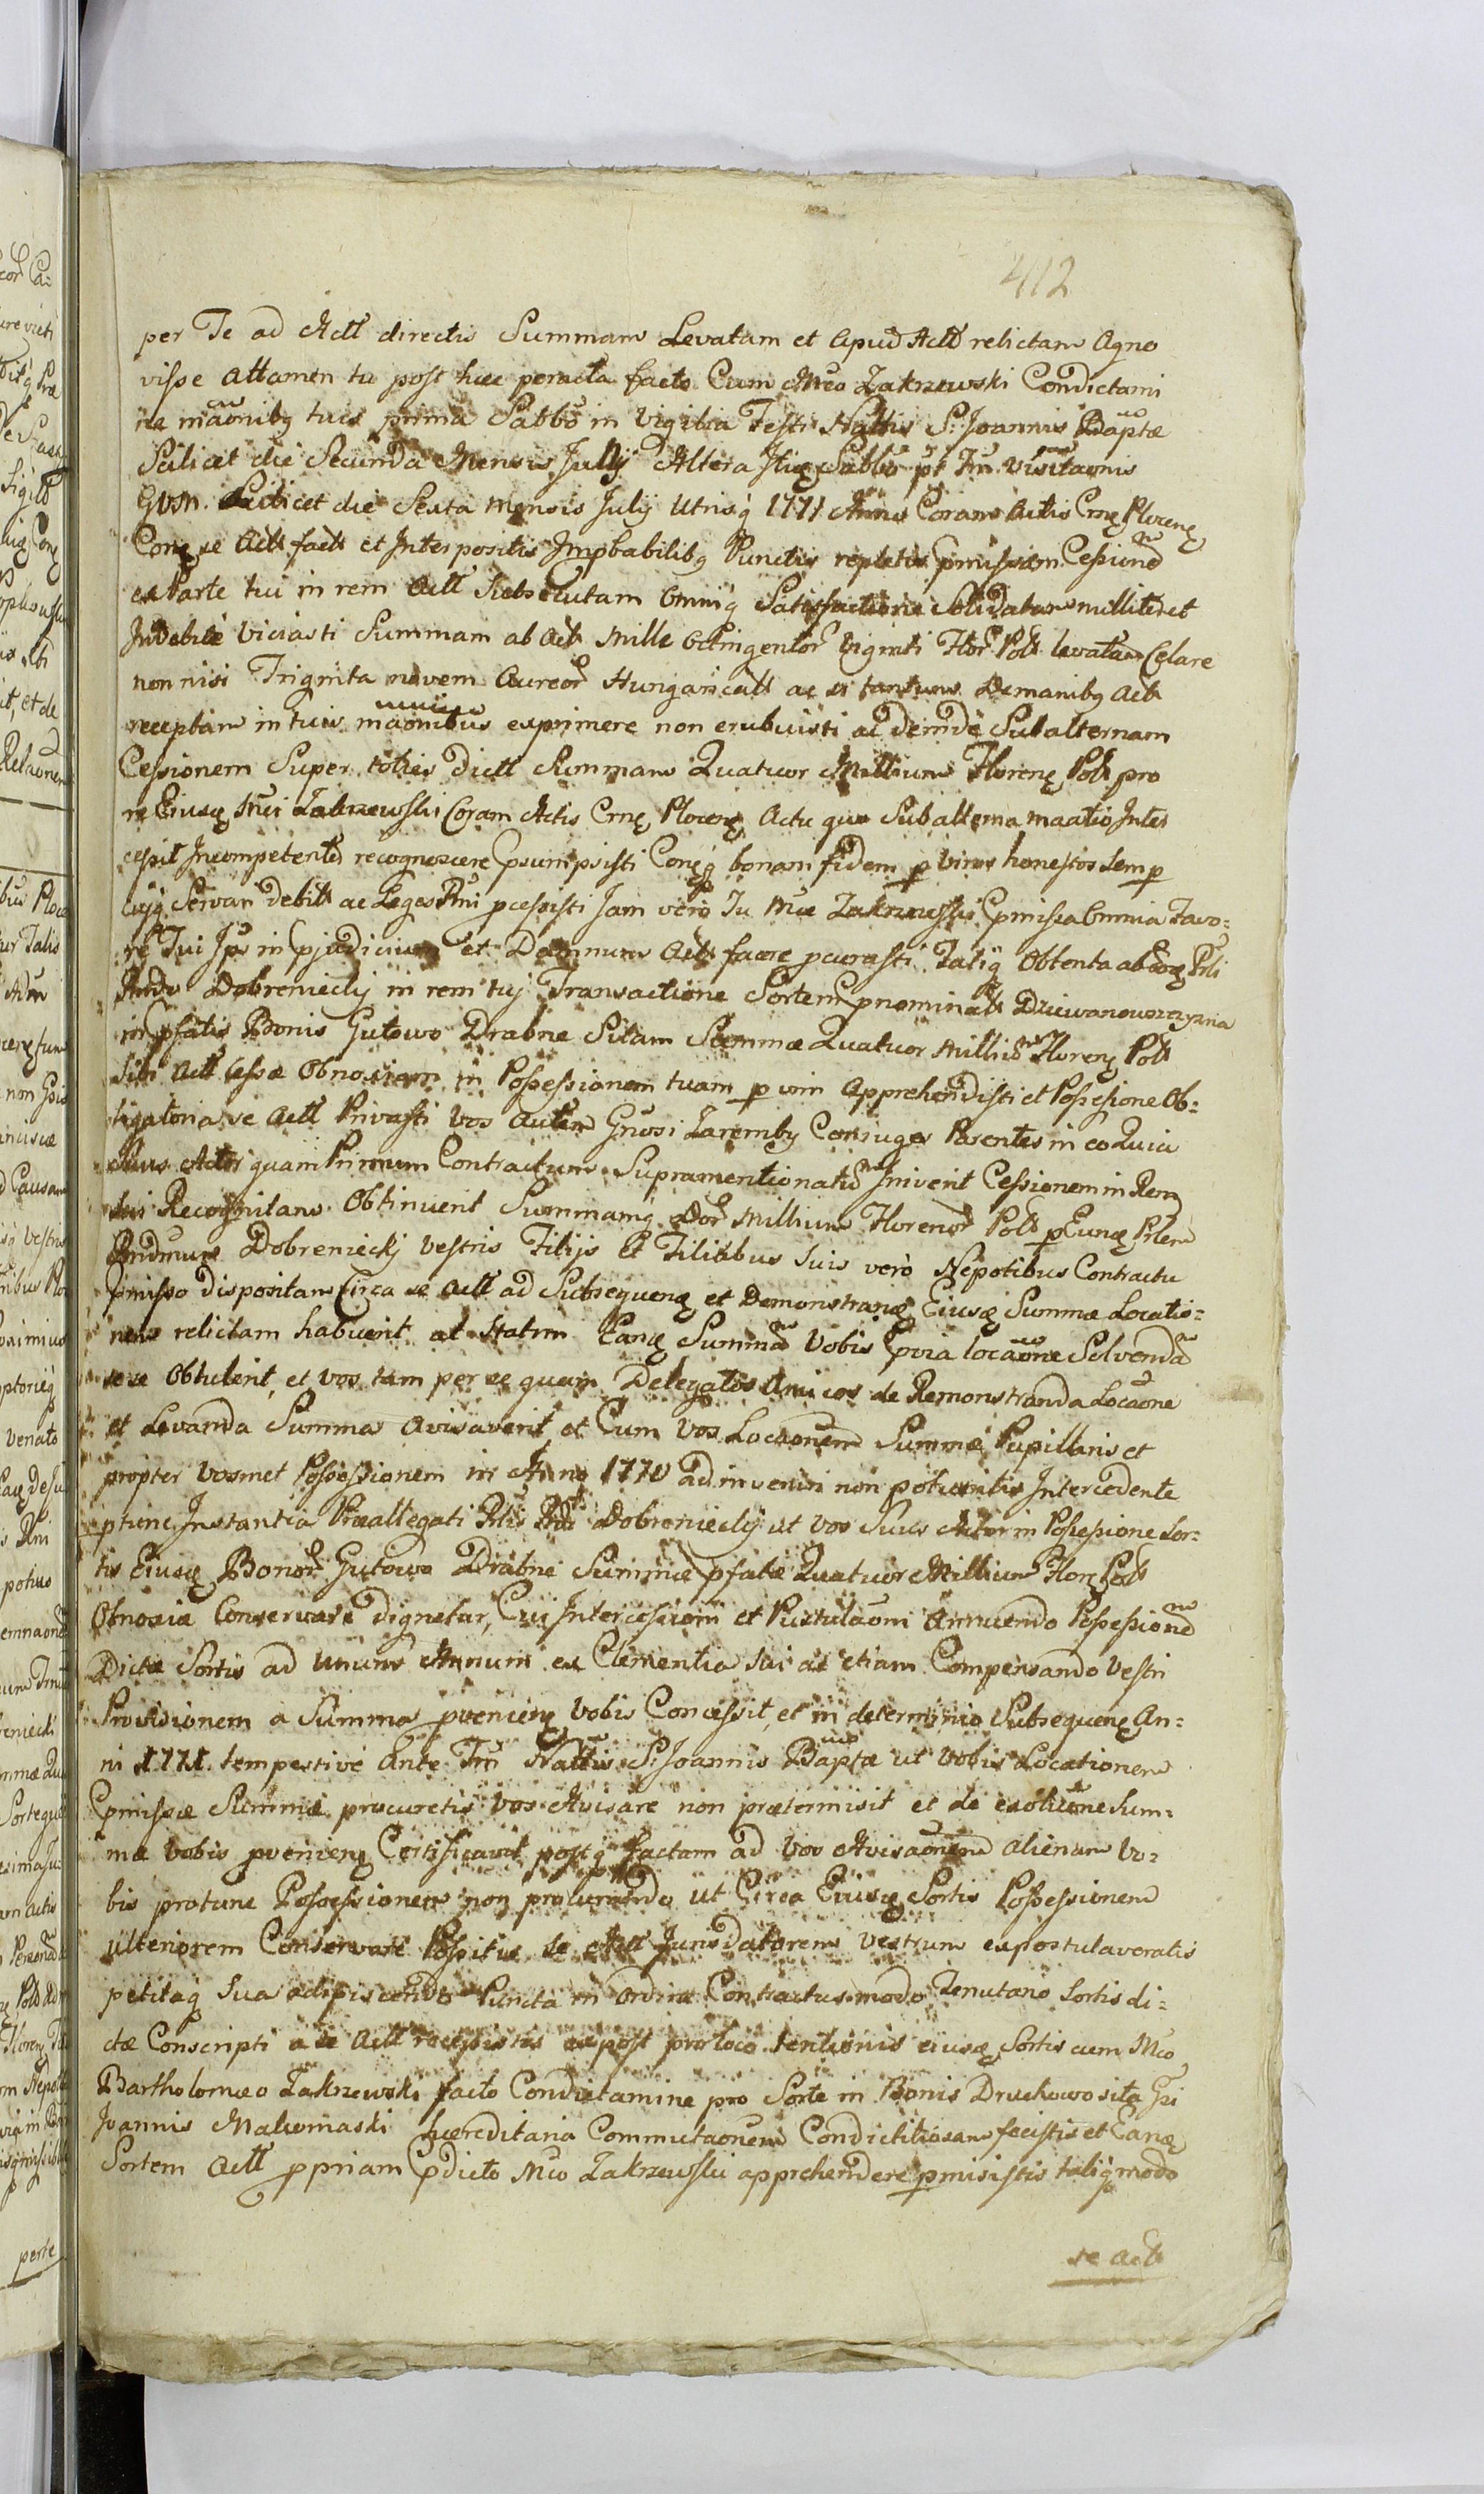 412
per Te ad Actt directis Summam Levatam et apud Actt relictam Agno
visse attamen tu post hæc peracta facto Cum Mco Zakrzewski Condictami
ne mãonibq tuis prima Sabbo in Vigilia Festi Nattis S: Joannis Baptæ
Scilicet die Secunda Mensis Julij Altera Itiq Sabbo pt Fm Visitaonis
GVM. Scilicet die Sexta mensis Julij Utrisq 1771 Anno Coram Actis Crnę Plocenę
Conę se Actt factt et Interpositis Improbabilibq Punctis repletis pmissam Cessionem
ex Parte tui in rem Actt Subsecutam Omniq Satisfactione Solidatam nulliter et
Indebite Viciasti Summam ab Act Mille Octingentor Viginti Flor Poll levatam Celare
non nisi Triginta novem Aureor Hungaricall ac si tantum De manibq Act
receptam in tuis maonibus exprimere non erubuisti ac deinde Subalternam
Cessionem Super toties dictt Summam Quatuor Millium Florenę Poll pro
re Eiusę Mci Zakrzewski Coram Actis Crnę Plocenę Actu quo Subalterna maatio Inter
cessit Incompetenter recognoscere psumpsisti Conęq bonam fidem p Viros honestos semp
Servari debitt ac Leges Rni pcessisti Jam vero Tu Mce Zakrzewski pmissa Omnia Favo:
re Tui Ipo in pjudicium et Damnum Actt facere pcurasti Taliq Obtenta ab Eoę Prli
Rndo Dobreniecki in rem tuj Transactione Sortem pnominatt Dziewanowszczyzna
in pfatis Bonis Gutowo Drabne Sitam Summæ Quatuor Millium Florenę Poll
Sibi Actt Cessæ Obnoxiam in Possessionem tuam p vim Apprehendisti et Possesione Ob:
ligatoria se Actt Privasti Vos Autem Gnosi Zaremby Coniuges Parentes in eo Quia
Suus Actor quam Primum Contractum Supramentionatum Iniverit Cessionem in Rem
Sui Recognitam Obtinuerit Summamq Dor Millium Florenor Poll p Eunę Prlem
Rndmum Dobreniecki Vestris Filijs Et Filiabus Suis vero Nepotibus Contractu
pmisso dispositam Circa se Actt ad Subsequenę et Demonstranę Eiusę Summæ Locatio:
nem relictam habuerit at statim Eanę Summam Vobis pvia locaone Solvendam
sese Obtulerit et vos tam per se quam Delegatos Amicos de Remonstranda Locaone
et Levanda Summa Avisaverit et Cum Vos Locaonem Summæ Pupillaris et
propter Vosmet Possessionem in Anno 1770 adinvenire non potueritis Intercedente
ptunc Instantia Præallegati Prlis Rdi Dobreniecki ut Vos Suus Actor in Possesione Sor:
tis Eiusę Bonor Gutowo Drabne Summæ pfatæ Quatuor Millium Flor Poll
Obnoxiæ Conservare dignetur, Cui Intercessioni et Pustulaoni Annuendo Possessionem
Dictæ Sortis ad Unum Annum ex Clementia Sui ac etiam Compensando Vestri
Provisionem a Summa pvenienę Vobis Concessit, et in determinio Subsequenę An:
ni 1771. tempestive Ante Fm Nattis S. Joannis Baptæ ut Vobis Locationem
pmissæ Summæ procuretis Vos Avisare non prætermisit et de exolutione Sum:
mæ Vobis pvenienę Certificavit postq factam ad Vos Avisaonem alienam Vo:
bis protunc Possessionem non procurando ut Circa Eiusę Sortis Possessionem
ulteriorem Conservare Possitis se Actt Jurisdatorem Vestrum expostulaveratis
petitaq Sua adipiscendo Puncta in Ordine Contractus modo Tenutario Sortis di:
ctæ Conscripti a se Actt recepistis ac post pro loco tentionis eiusę Sortis cum Mco
Bartholomeo Zakrzewski facto Condictamine pro Sorte in Bonis Druchowo sita Gsi
Joannis Makomaski hæreditaria Commutaonem Condictitiosam fecistis et Eanę
Sortem Actt ppriam pdicto Mco Zakrzewski apprehendere pmisistis taliq modo
se Actt